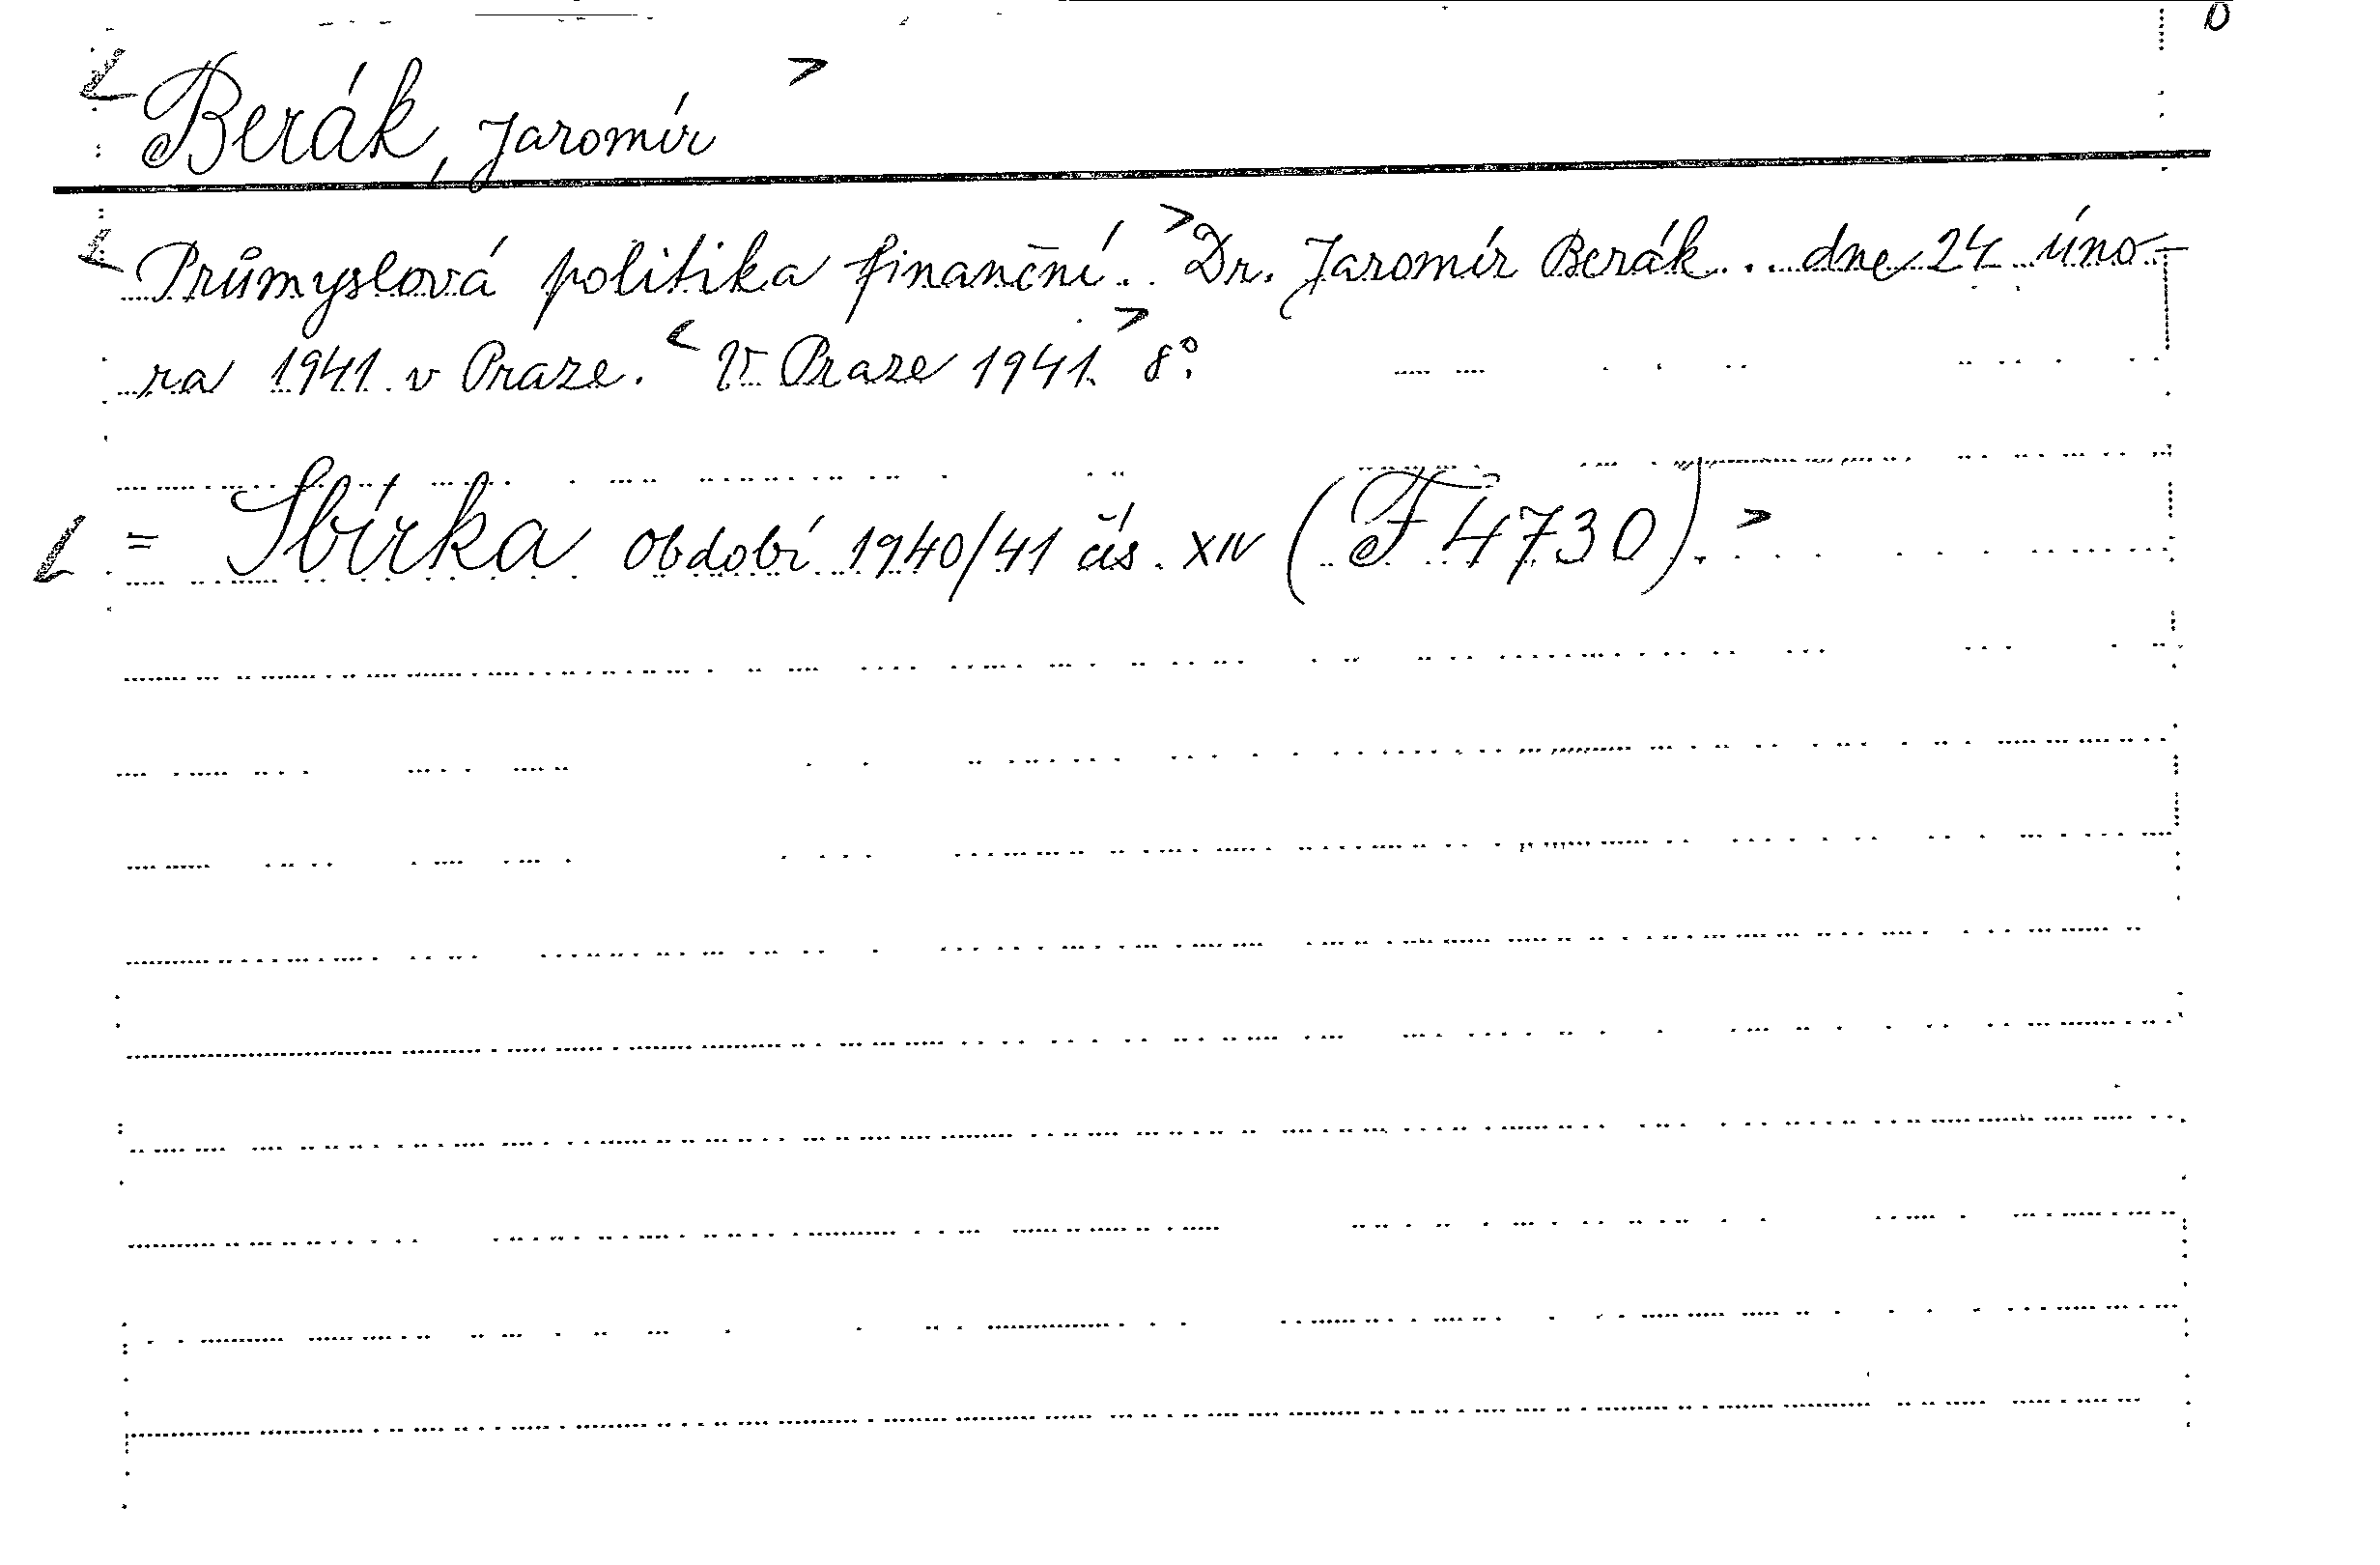 Berák, Jaromír
Průmyslová politika finanční. Dr. Jaromír Berák... dne 24 úno-
ra 1941 v Praze. V Praze 1941. 8°.
= Sbírka období 1940/41 čís. XIV (F 4730).